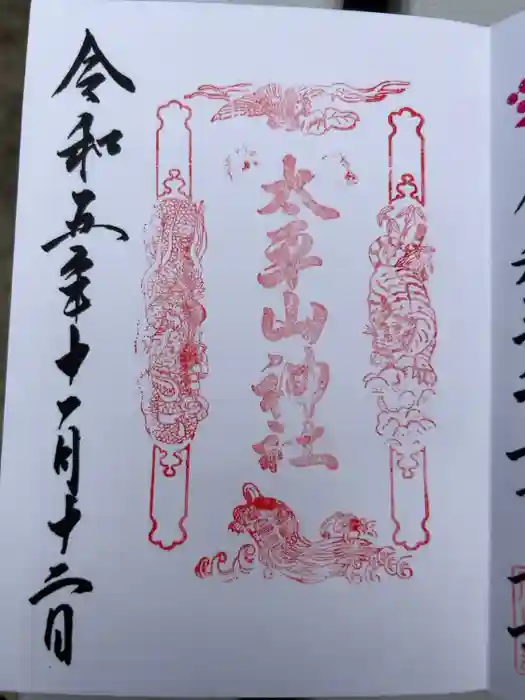 太平山神社
令和五年十一月十二日